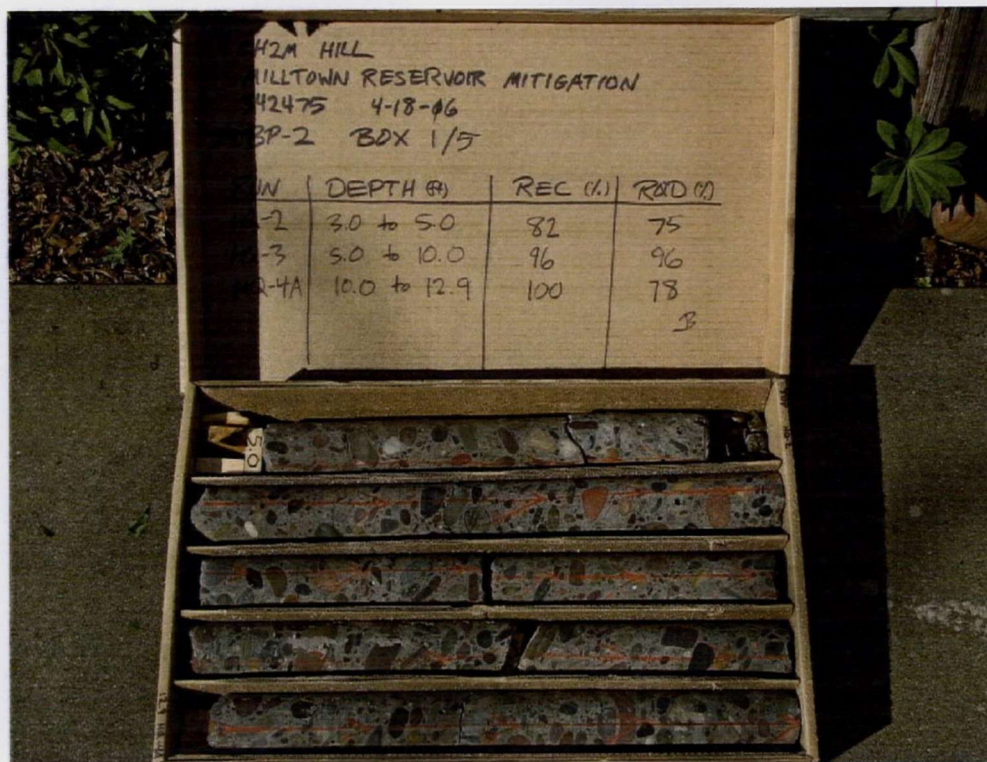 H2M HILL
MILLTOWN RESERVOIR MITIGATION
42475 4-18-06
BP-2 BOX 1/5
RUN DEPTH (ft) REC (%) RQD (%)
-2 3.0 to 5.0 82 75
-3 5.0 to 10.0 96 96
-4A 10.0 to 12.9 100 78
5.0